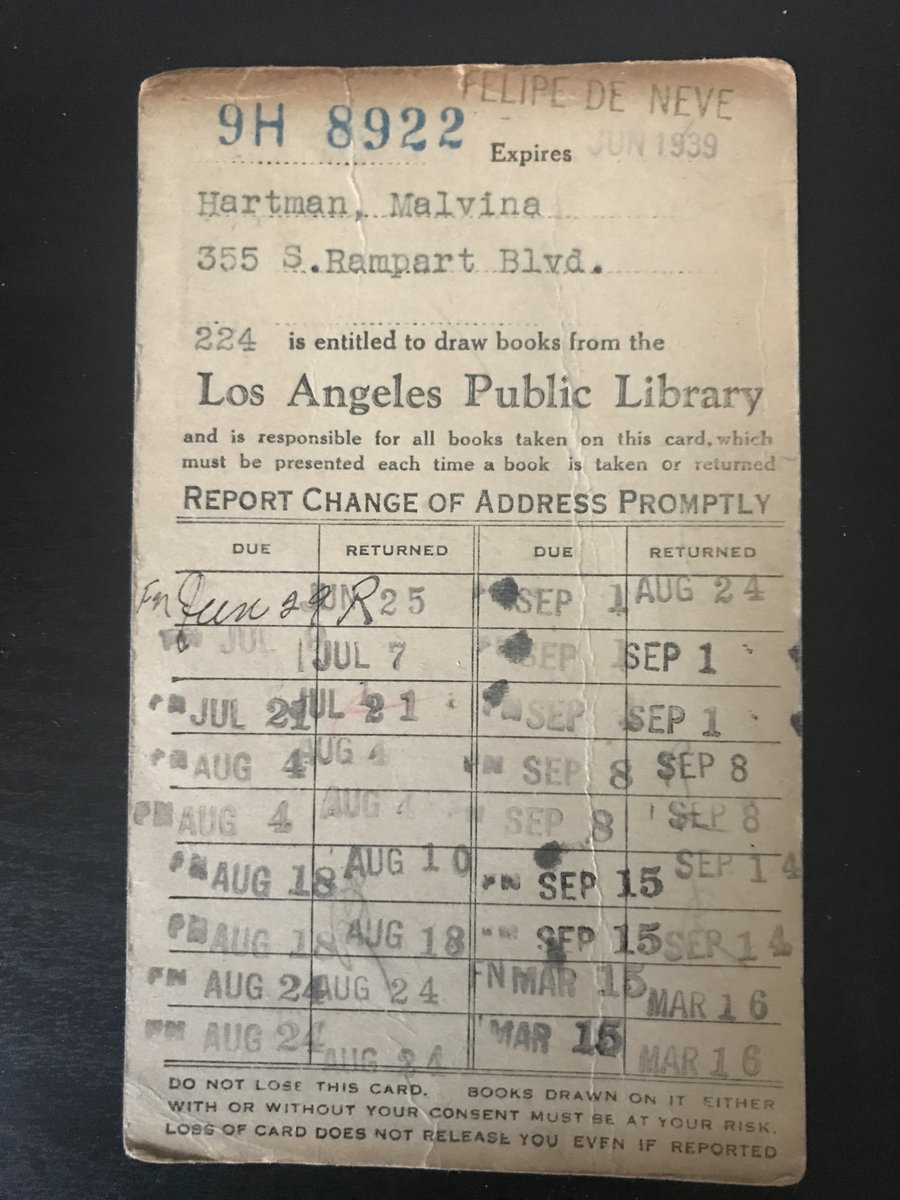 FELIPE DE NEVE
9H 8922 Expires JUN 1939
Hartman, Malvina
355 S.Rampart Blvd.
224 is entitled to draw books from the
Los Angeles Public Library
and is responsible for all books taken on this card, which
must be presented each time a book is taken or returned
REPORT CHANGE OF ADDRESS PROMPTLY
DUE RETURNED DUE RETURNED
FN Jun 29 JUN R 25 SEP 1 AUG 24
JUL JUL 7 SEP 1 SEP 1
FN JUL 21 JUL 21 FN SEP SEP 1
FN AUG 4 AUG 4 FN SEP 8 SEP 8
FN AUG 4 AUG 4 SEP 8 SEP 8
FN AUG 18 AUG 10 FN SEP 15 SEP 14
FN AUG 18 AUG 18 SEP 15 SEP 14
FN AUG 24 AUG 24 FN MAR 15 MAR 16
FN AUG 24 AUG 24 MAR 15 MAR 16
DO NOT LOSE THIS CARD. BOOKS DRAWN ON IT EITHER
WITH OR WITHOUT YOUR CONSENT MUST BE AT YOUR RISK.
LOSS OF CARD DOES NOT RELEASE YOU EVEN IF REPORTED